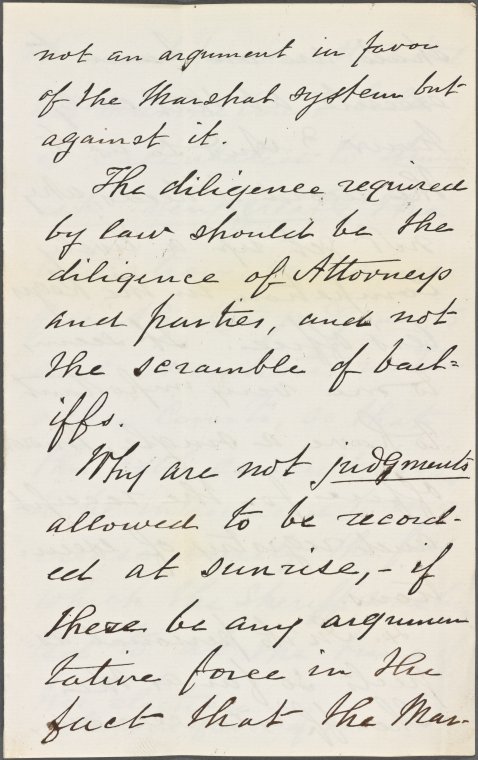 not an argument in favor
of the Marshal system but
against it.
The diligence required
by law should be the
diligence of Attorneys
and parties, and not
the scramble of bail=
iffs.
Why are not judgments
allowed to be record-
ed at sunrise, - if
there be any argumen
tative force in the
fact that the Mar-